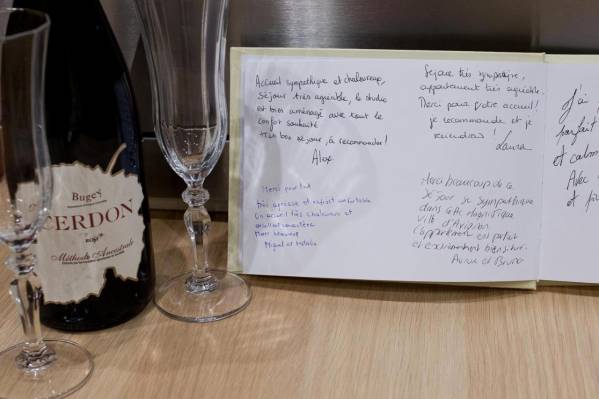 Buges
CERDON
ROSÉ
Méthode Ancestrale
Accueil sympathique et chaleureux,
séjour très agréable, le studio
est bien aménagé avec tout le
confort souhaité
très bon séjour, à recommander!
Alex
Merci pour tout
très agréable et confortable
Un accueil très chaleureux et
Merci beaucoup
Miguel et Natalia
Séjour très sympathique,
appartement très agréable.
Merci pour votre accueil!
je recommande et je
reviendrai!
Laura
Merci beaucoup de ce
séjour si sympathique
dans cette magnifique
ville d'Avignon
l'appartement est parfait
et extrêmement bien situé.
et Bruno
J'ai
parfait
et calme
Avec
et